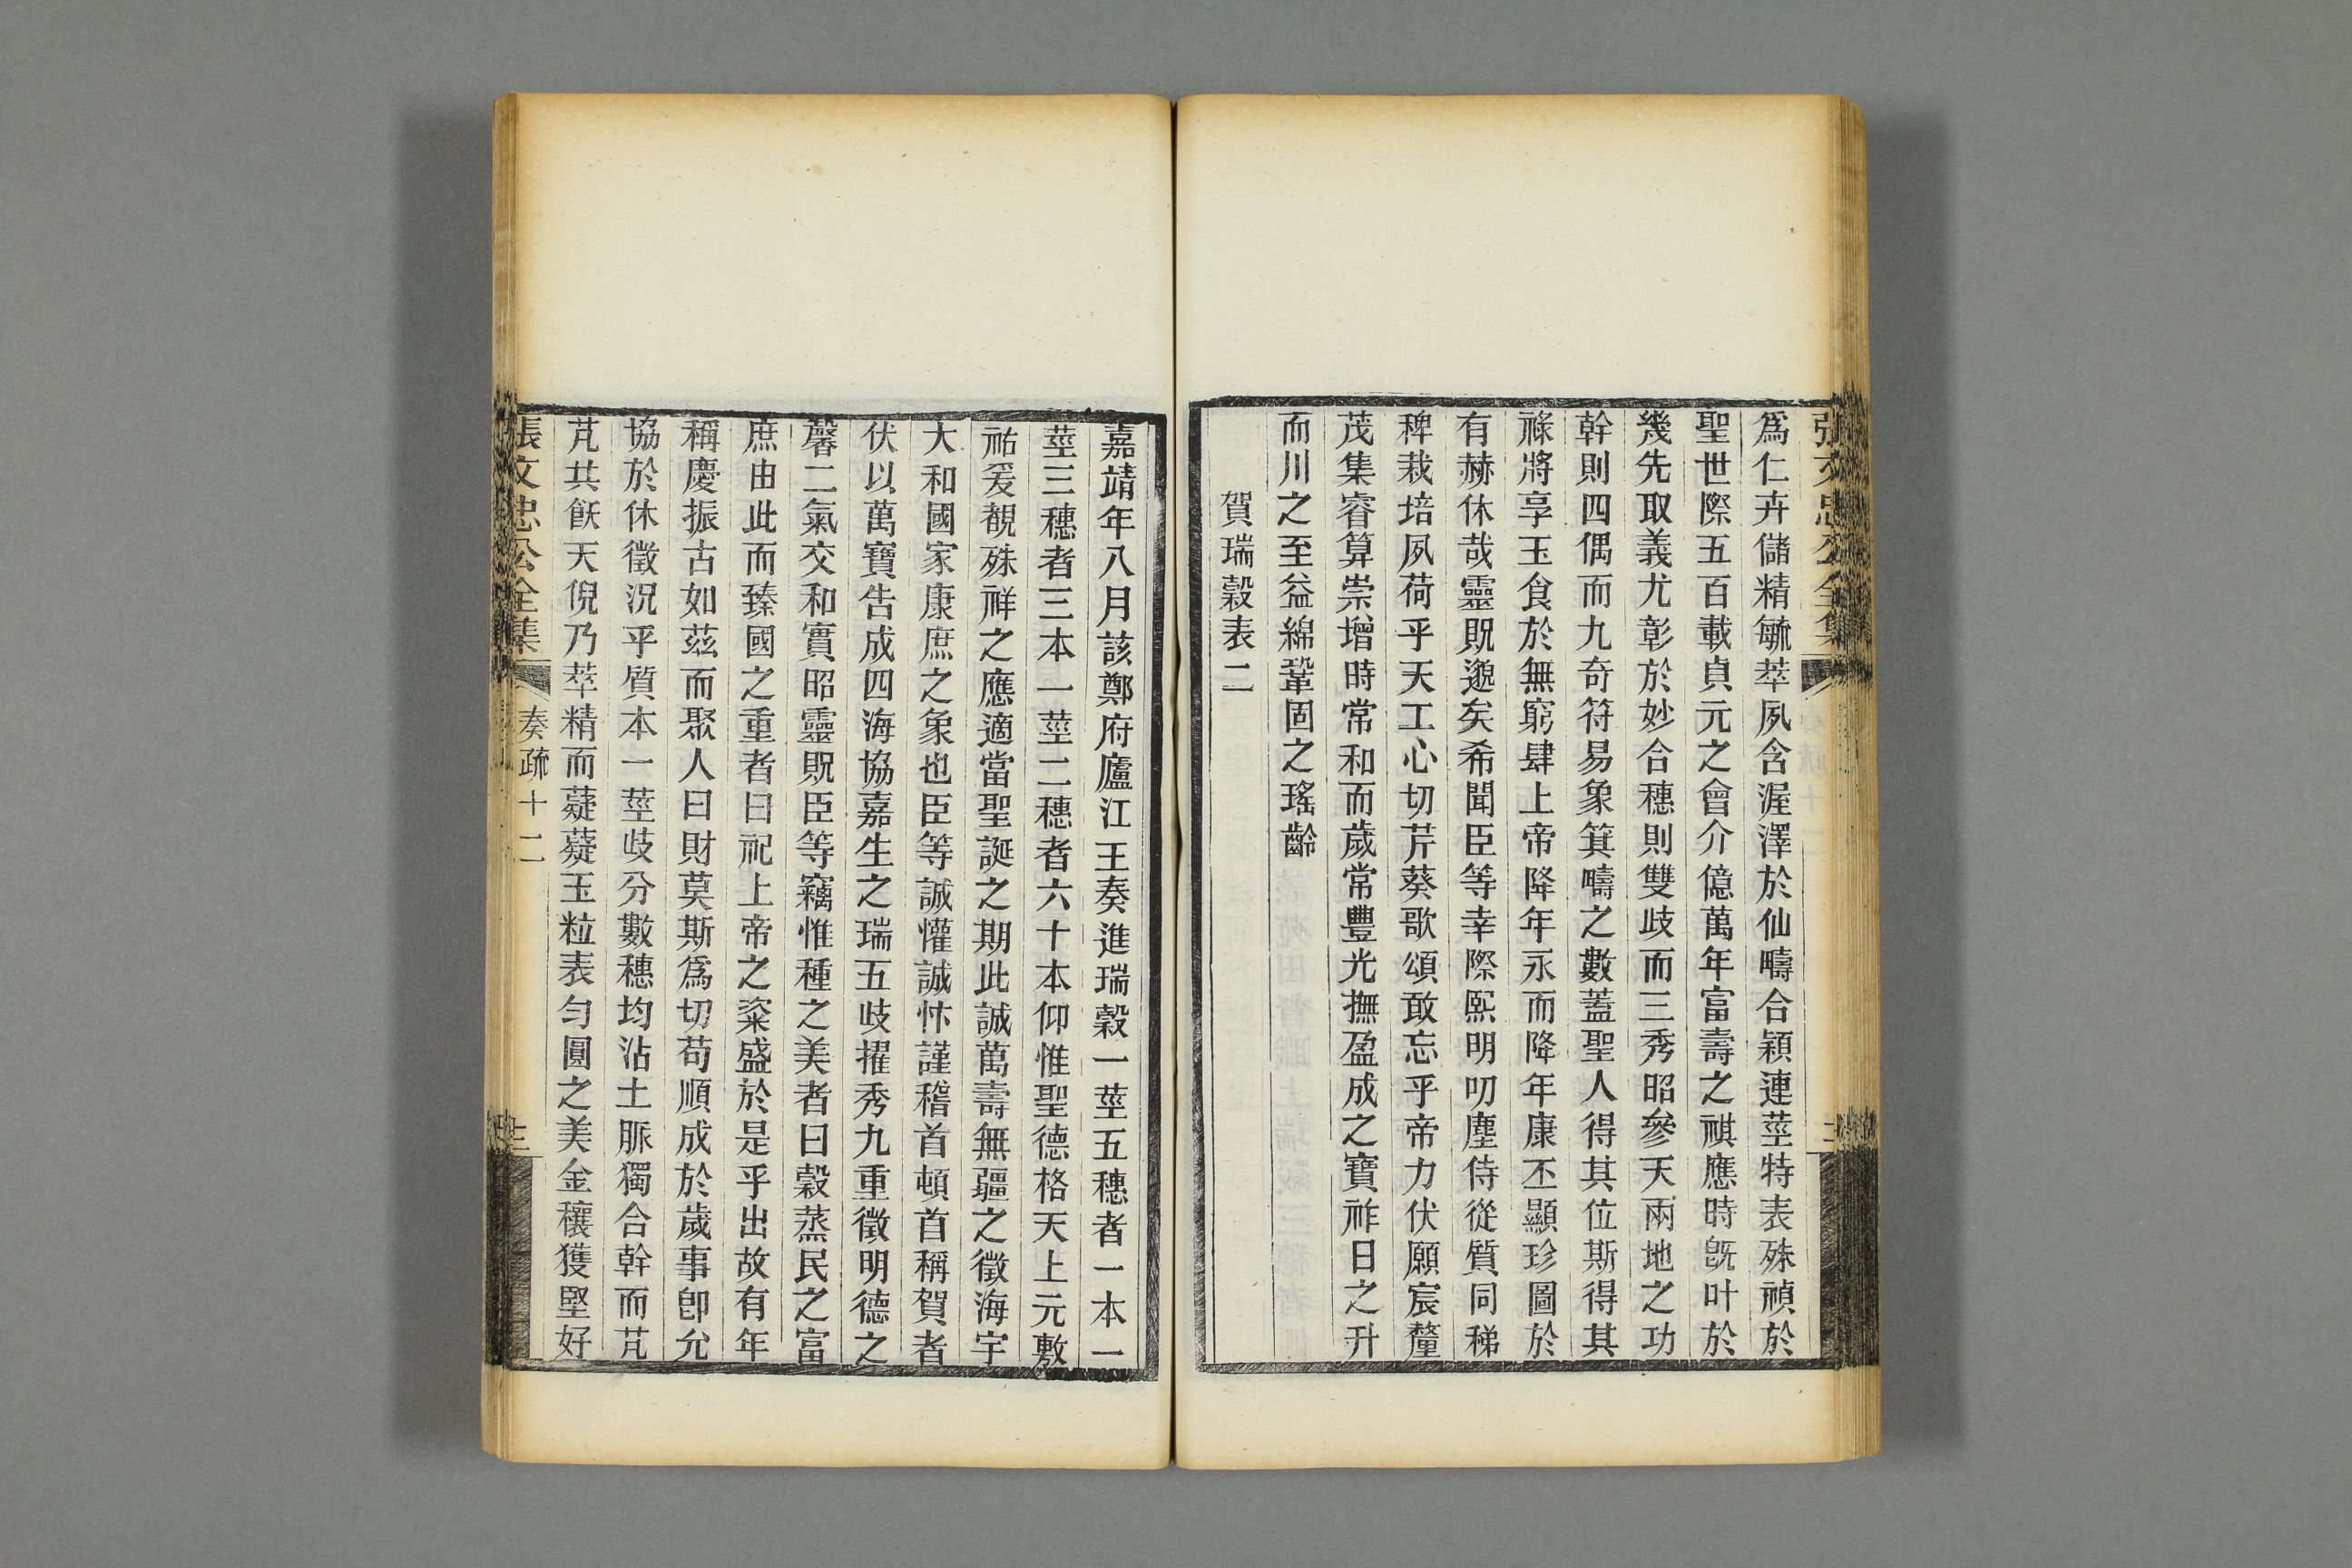 張文忠公全集
爲仁卉儲精毓萃夙含渥澤於仙疇合穎連莖特表殊禎於
聖世際五百載貞元之會介億萬年富壽之祺應時旣叶於
幾先取義尤彰於妙合穗則雙歧而三秀昭參天兩地之功
幹則四偶而九奇符易象箕疇之數蓋聖人得其位斯得其
祿將享玉食於無窮肆上帝降年永而降年康丕顯珍圖於
有赫休哉靈貺邈矣希聞臣等幸際熙明叨塵侍從質同稊
稗栽培夙荷乎天工心切芹葵歌頌敢忘乎帝力伏願宸釐
茂集睿算崇增時常和而歲常豐光撫盈成之寶祚日之升
而川之至益綿鞏固之瑤齡
賀瑞穀表二
嘉靖年八月該鄭府廬江王奏進瑞穀一莖五穗者一本一
莖三穗者三本一莖二穗者六十本仰惟聖德格天上元敷
祐爰覩殊祥之應適當聖誕之期此誠萬壽無疆之徵海宇
大和國家康庶之象也臣等誠懽誠忭謹稽首頓首稱賀者
伏以萬寶告成四海協嘉生之瑞五歧擢秀九重徵明德之
馨二氣交和實昭靈貺臣等竊惟種之美者曰穀蒸民之富
庶由此而臻國之重者曰祀上帝之粢盛於是乎出故有年
稱慶振古如茲而聚人曰財莫斯爲切苟順成於歲事卽允
協於休徵況乎質本一莖歧分數穗均沾土脈獨合幹而芃
芃共飫天倪乃萃精而薿薿玉粒表勻圓之美金穰獲堅好
張文忠公全集
奏疏十二
三